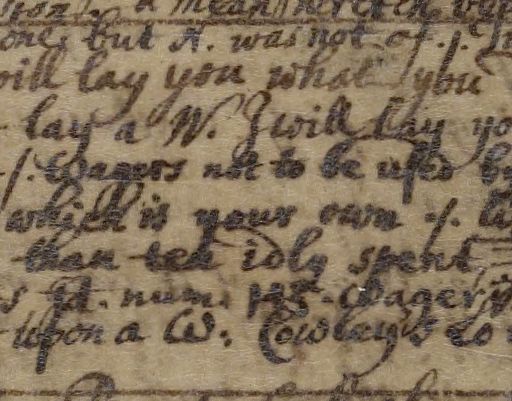 a mean wretch
one; but A. was not of ./. I
will lay you what you
lay a W. I will lay yo
./. Wagers not to be used b
which is your own ./.
than ten idly spent
s Pl. num. 145. Wager
upon a W. Cowley's